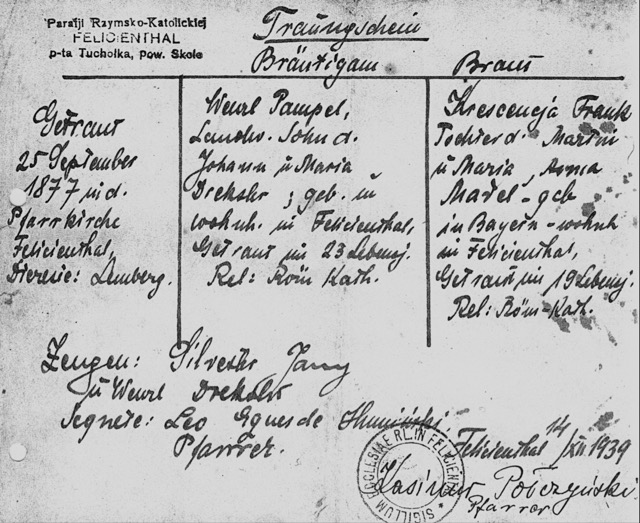 Parafji Rzymsko-Katolickiej
FELICIENTHAL
p-ta Tucholka, pow. Skole
Trauungschein
Bräutigam
Braut
Getraut
25 September
1877 in d.
Pfarrkirche
Felicienthal,
Diezese: Lemberg.
Wenzl Pampel,
Landw. Sohn d.
Johann u Maria
Dreksler; geb. u
wohnh. in Felicienthal,
Getraut im 23 Lebensj.
Rel: Röm Kath.
Krescencja Frank
Tochter d. Martin
u Maria, Anna
Madel - geb
in Bayern - wohnh
in Felicienthal,
Getraut im 19 Lebensj.
Rel: Röm-Kath.
Zeugen: Silvester
u Wenzl Dreksler
Segnete: Leo
Pfarrer.
Felicienthal 14/XII 1939
SIGILLUM ECCLESIAE RL. IN FELICIENT
Pfarrer